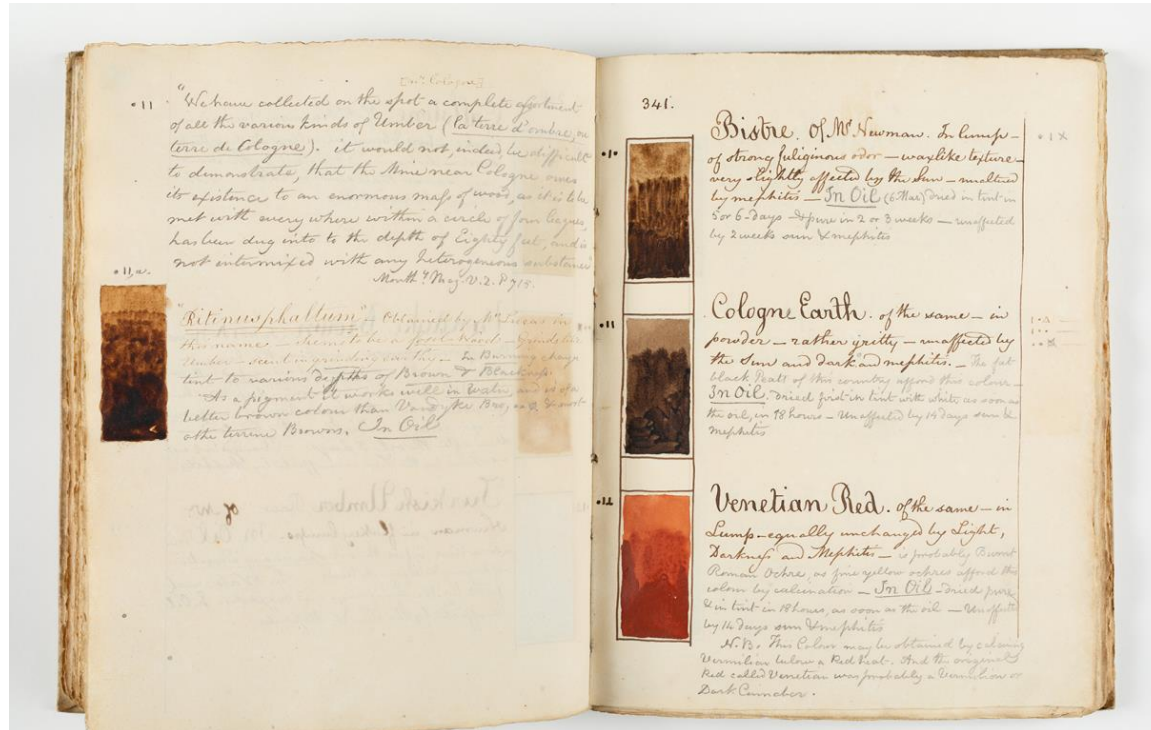 [in Cologne]
•11 "We have collected on the spot a complete assortment
of all the various kinds of Umber (la terre d'ombre, ou
terre de Cologne). it would not, indeed, be difficult
to demonstrate, that the Mine near Cologne owes
its existence to an enormous mass of wood, as it is to be
met with every where within a circle of four leagues,
has been dug into to the depth of Eighty feet, and is
not intermixed with any heterogeneous substance"
Month.y Mag. V. 2. P 715.
•11,a.
"Ritinusphaltum" — Obtained by Mr Lucas in
this name — to be a fossil Wood —
Umber — scent in grinding — In Burning change
tint to various depths of Brown & Blackness
As a pigment it works well in Water, and is of a
better brown colour than Vandyke Bro, & most
other terrene Browns. In Oil
341.
•1•
Bistre. Of Mr Newman. In lump —
of strong fuliginous odor — waxlike texture —
very slightly affected by the Sun — unaltered
by mephitis — In Oil (6 Mar) dried in tint in
5 or 6 days & pure in 2 or 3 weeks — unaffected
by 2 weeks sun & mephitis
•11
Cologne Earth. of the same — in
powder — rather gritty — unaffected by
the Sun and dark and mephitis. — The fat
black Peatt of this country afford this colour —
In Oil. Dried first in tint with white as soon as
the oil, in 18 hours — Unaffected by 14 days sun &
mephitis
Venetian Red. of the same — in
Lump — equally unchanged by Light,
Darkness and Mephitis — is probably Burnt
Roman Ochre, as fine yellow ochres afford this
colour by calcination — In Oil — Dried pure
& in tint in 18 hours, as soon as the oil — Unaffected
by 14 days sun & mephitis
N.B. This Colour may be obtained by
Vermilion below a Red heat. And the original
Red called Venetian was probably a Vermilion or
Dark Cinnaber.